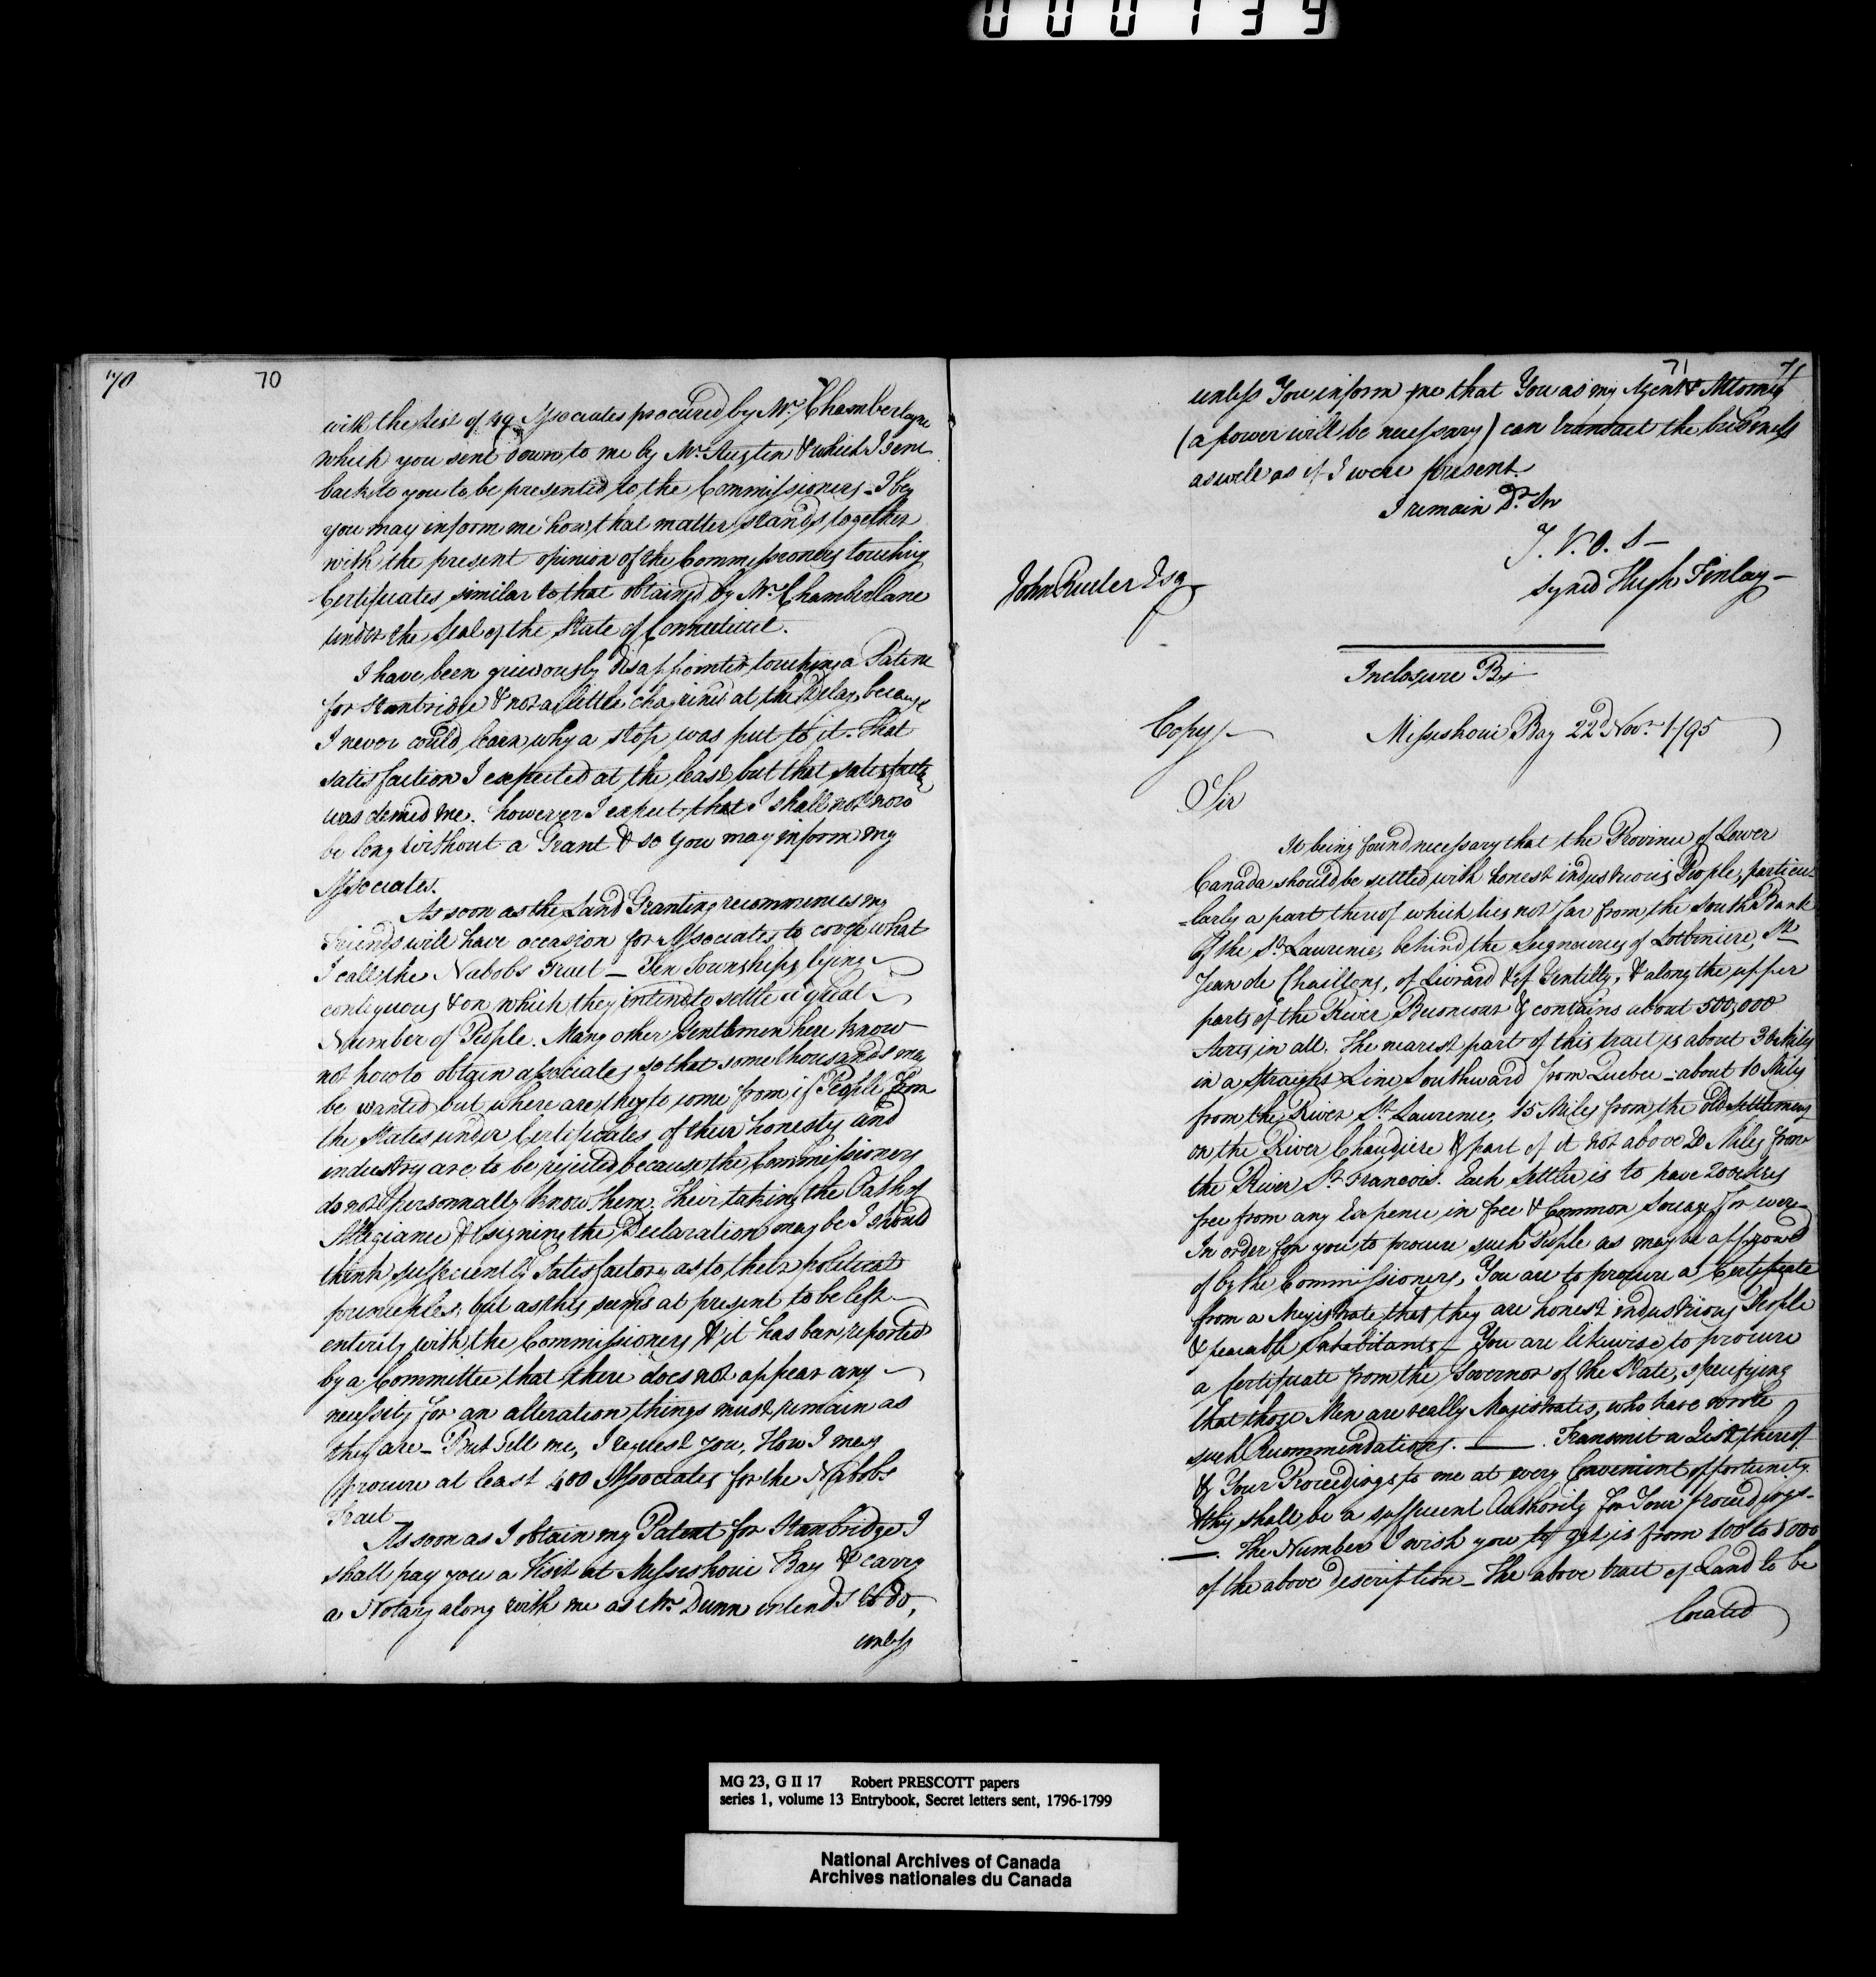 000139
70 70
with the List of 49 Associates procured by Mr. Chamberlayne
which you sent down to me by Mr. Austin & which I sent
back to you to be presented to the Commissioners - I beg
you may inform me how that matter stands together
with the present opinion of the Commissioners touching
Certificates similar to that obtained by Mr. Chamberlane
under the Seal of the State of Connecticut.
I have been grievously disappointed touching a Patent
for Stanbridge & not a little chagrined at the Delay because
I never could learn why a stop was put to it. That
satisfaction I expected at the least but that satisfactn
was denied me. however I expect that I shall not now
be long without a Grant & so you may inform my
Associates.
As soon as the Land Granting recommences my
Friends will have occasion for Associates to cover what
I call the Nabobs Tract - Ten Townships lying
contiguous & on which they intend to settle a great
Number of People. Many other Gentlemen here know
not how to obtain associates so that some thousands may
be wanted but where are they to come from if People from
the States under Certificates of their honesty and
industry are to be rejected because the Commissioners
do not personnally know them. Their taking the Oath of
Allegiance & signing the Declaration may be I should
think sufficiently Satisfactory as to their political
principles, but as this seems at present to be left
entirely with the Commissioners & it has been reported
by a Committee that there does not appear any
necessity for an alteration things must remain as
they are - But Tell me, I request you, How I may
procure at least 400 Associates for the Nabobs
Tract
As soon as I obtain my Patent for Stanbridge I
shall pay you a Visit at Missishoui Bay & carry
a Notary along with me as Mr. Dunn intends to do,
unless
71 71
unless You inform me that You as my Agent & Attorney
(a power will be necessary) can transact the business
as well as if I were present
I remain Dr. Sir
Y. V. O. S -
Signed Hugh Finlay -
John Ruiter Esq
Inclosure B1
Copy/ Missishoui Bay 22d Novr. 1795
Sir
It being found necessary that the Province of Lower
Canada should be settled with honest industrious People, particu-
-larly a part thereof which lies not far from the South Bank
of the St. Lawrence, behind the Seigneuries of Lotbiniere, St
Jean de Chaillons, of Livrard & of Gentilly, & along the upper
parts of the River & contains about 500,000
Acres in all. The nearest part of this tract is about 30 Miles
in a straight Line Southward from Quebec - about 10 Miles
from the River St. Lawrence, 15 Miles from the old Settlements
on the River Chaudiere & part of it not above 20 Miles from
the River St. Francois. Each Settler is to have 200 acres
free from any Expence in free & Common Socage for ever -
In order for you to procure such People as may be approved
of by the Commissioners, You are to procure a Certificate
from a Magistrate that they are honest industrious People
& peaceable Inhabitants - You are likewise to procure
a Certificate from the Governor of the State, specifying
that those Men are really Magistrates, who have wrote
such Recommendations. - Transmit a List thereof
& Your Proceedings to me at every Convenient opportunity.
& this shall be a sufficient Authority for Your proceedings -
- The Number I wish you to get is from 100 to 5000
of the above description - The above tract of Land to be
located
MG 23, G II 17 Robert PRESCOTT papers
series 1, volume 13 Entrybook, Secret letters sent, 1796-1799
National Archives of Canada
Archives nationales du Canada